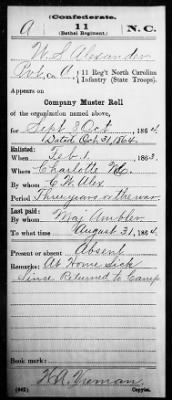 (Confederate.)
A 11 N.C.
(Bethel Regiment.)
W. S. Alexander
Pvt, Co. A, 11 Reg't North Carolina
Infantry (State Troops).
Appears on
Company Muster Roll
of the organization named above,
for Sept & Oct, 1864.
Dated Oct. 31, 1864.
Enlisted:
When Feb 1, 1863.
Where Charlotte N.C.
By whom C. W. Alex
Period Three years or the war.
Last paid:
By whom Maj Ambler
To what time August 31, 1864.
Present or absent Absent
Remarks: At Home Sick
Since Returned to Camp
Book mark:
(642)